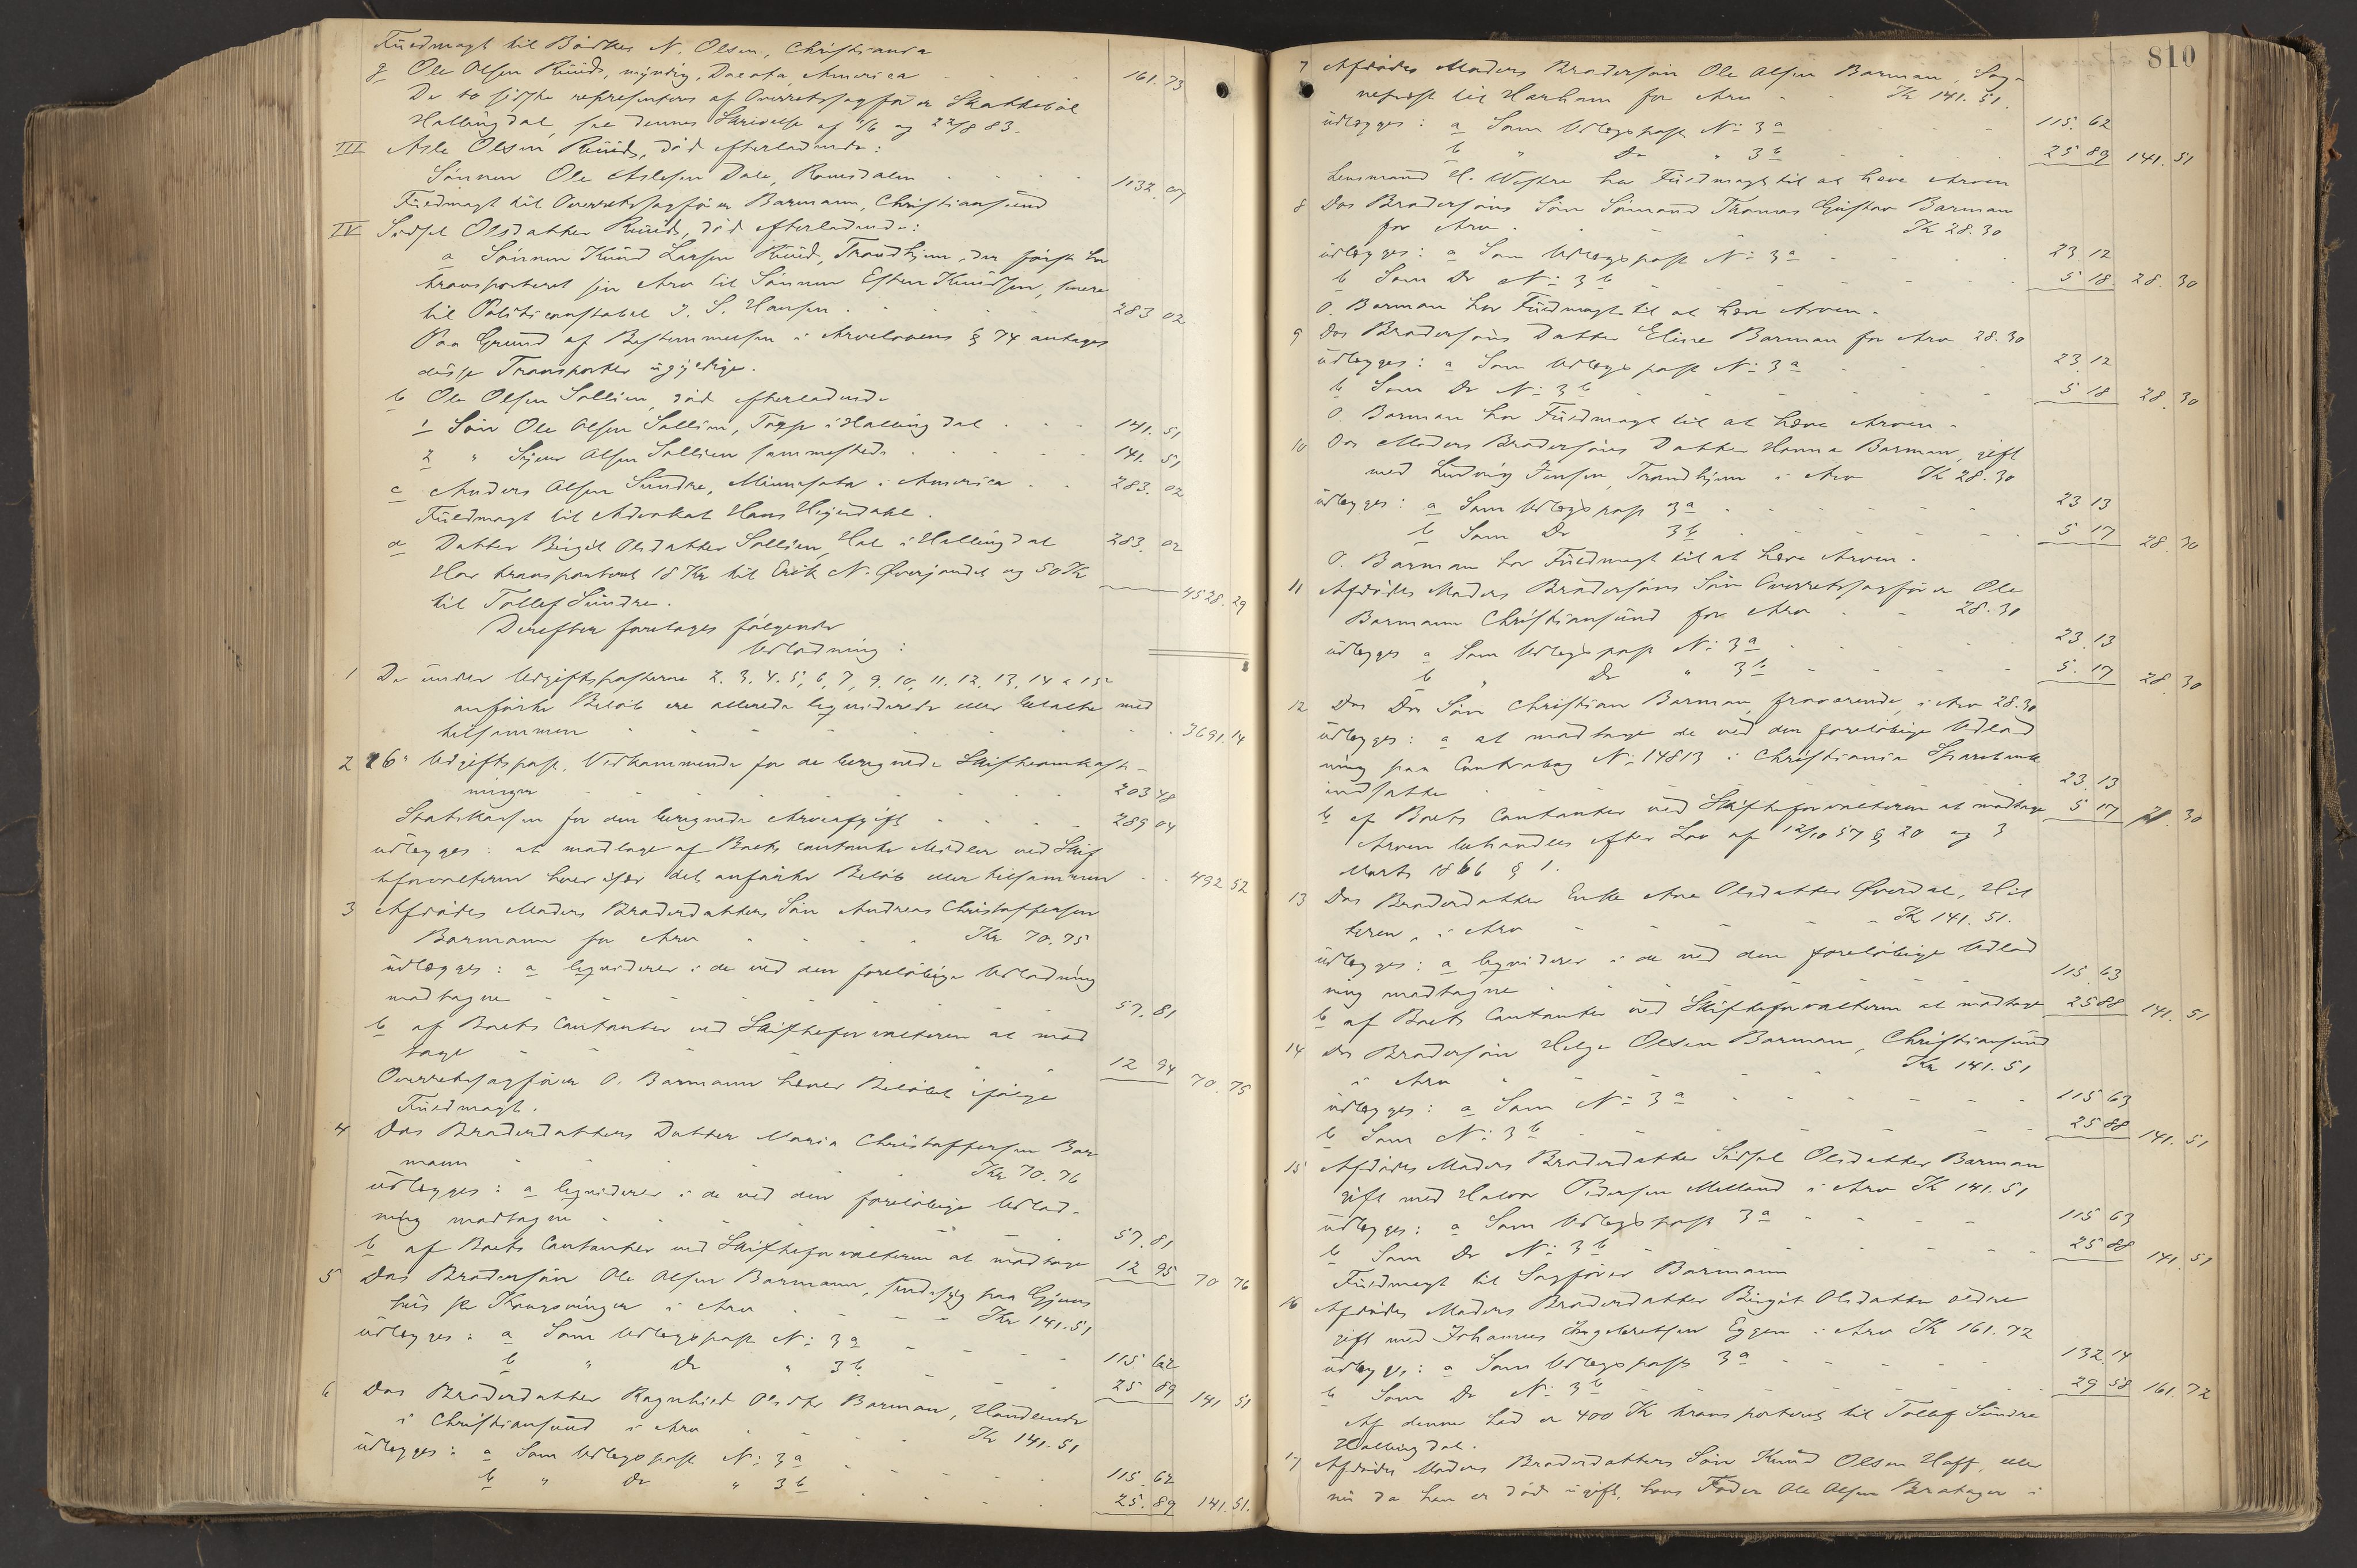 Fuldmagt til Bödker N. Olsen, Christiania
g Ole Olsen Ruud, myndig, Dacota, America 161.73
De to sidste repræsenteres af Overretssagförer Skattebøl
Hallingdal, see dennes Skrivelse af 1/6 og 22/8 83.
III Asle Olsen Ruud, död efterladende:
Sönnen Ole Aslesen Dale, Romsdalen 1132.07
Fuldmagt til Overretssagförer Barmann, Christiansund
IV Sidsel Olsdatter Ruud, död efterladende:
a Sönnen Knud Larsen Ruud, Trondhjem, der först har
transporteret sin Arv til Sönnen Esten Knudsen, senere
til Politiconstabel J. S. Hansen 283 02
Paa Grund af Bestemmelsen i Arvelovens § 74 antages
disse Transporter ugyldige.
b Ole Olsen Sollien, död efterladende
1 Sön Ole Olsen Sollien, Torpe i Hallingdal 141.51
2 " Syver Olsen Sollien sammesteds 141.51
c Anders Olsen Sundre, Minnesota i America 283.02
Fuldmagt til Advokat Hans Heyerdahl.
d Datter Birgit Olsdatter Sollien, Hol i Hallingdal 283.02
Har transporteret 18 Kr til Erik N. Øverjordet og 50 Kr
til Tollef Sundre. 4528.29
Derefter foretages fölgende
Udlodning:
1 De under Udgiftsposterne 2. 3. 4. 5, 6, 7, 9. 10, 11. 12. 13. 14 a 15
anförte Belöb ere allerede liqviderede eller betalte med
tilsammen 3691.14
2 16" Udgiftspost, Vedkommende for de beregnede Skifteomkost-
ninger 203 48
Statskassen for den beregnede Arveafgift 289 04
udlægges: at modtage af Boets contante Midler ved Skif
teforvalteren hver især det anförte Belöb eller tilsammen 492 52
3 Afdödes Moders Broderdatters Sön Andreas Christoffersen
Barmann for Arv Kr 70.75
udlægges: a liqviderer i de ved den foreløbige Udlodning
modtagne 57.81
b af Boets Contanter ved Skifteforvalteren at mod
tage 12 94 70.75
Overretssagförer O. Barmann hæver Belöbet ifölge
Fuldmagt.
4 Dos Broderdatters Datter Maria Christoffersen Bar
mann Kr 70.76
udlægges: a liqviderer i de ved den forelöbige Udlod-
ning modtagne 57.81
b af Boets Contanter ved Skifteforvalteren at modtage 12 95 70 76
5 Dos Brodersön Ole Olsen Barmann, sindssyg paa
Kongsvinger i Arv Kr 141.51
udlægges: a Som Udlægspost No 3 a 115 62
b " Do " 3 b 25 89 141 51
6 Dos Broderdatter Ragnhild Olsdtr Barman, Handlende
i Christiansund i Arv Kr 141.51
udlægges: a Som Udlægspost No 3 a 115.62
b " Do " 3 b 25.89 141.51.
810
7 Afdödes Moders Brodersön Ole Olsen Barman,
til Harham for Arv Kr 141.51.
udlægges: a Som Udlægspost No 3 a 115.62
b " Do " 3 b 25 89 141.51
Lensmand H. Westre har Fuldmagt til at hæve Arven
8 Dos Brodersöns Sön Sömand Thomas Gustav Barman
for Arv Kr 28.30
udlægges: a Som Udlægspost No 3 a 23.12
b Som Do No 3 b 5 18 28.30
O. Barman har Fuldmagt til at hæve Arven.
9 Dos Brodersöns Datter Eline Barman for Arv 28.30
udlægges: a Som Udlægspost No 3 a 23.12
b Som Do No 3 b 5 18 28.30
O. Barman har Fuldmagt til at hæve Arven.
10 Dos Moders Brodersöns Datter Hanna Barman, gift
med Ludvig Jensen, Trondhjem i Arv Kr 28.30
udlægges: a Som Udlægspost 3 a 23 13
b Som Do 3 b 5 17 28.30
O. Barman har Fuldmagt til at hæve Arven.
11 Afdödes Moders Brodersöns Sön Overretssagförer Ole
Barmann Christiansund for Arv 28.30
udlægges a Som Udlægspost No 3 a 23.13
b " Do " 3 b 5.17 28.30
12 Dos Dos Sön Christian Barman, fraværende, i Arv 28.30
udlægges: a at modtage de ved den forelöbige Udlod
ning paa Contrabog No 14813 i Christiania Sparebank
indsatte 23.13
b af Boets Contanter ved Skifteforvalteren at modtage 5 17 28.30
Arven behandles efter Lov af 12/10 57 § 20 og 3
Marts 1866 § 1.
13 Dos Broderdatter Enke Ane Olsdatter Øverdal, Hit
teren, i Arv Kr 141.51.
udlægges: a liqviderer i de ved den forelöbige Udlod
ning modtagne 115.63
b af Boets Contanter ved Skifteforvalteren at modtage 25 88 141.51
14 Dos Brodersön Helge Olsen Barman, Christiansund
i Arv Kr 141.51
udlægges: a Som No 3 a 115 63
b Som No 3 b 25 88 141.51
15 Afdödes Moders Broderdatter Sidsel Olsdatter Barman
gift med Halvor Pedersen Melland i Arv Kr 141.51
udlægges: a Som Udlægspost 3 a 115 63
b Som Do No 3 b 25 88 141.51
Fuldmagt til Sagförer Barmann
16 Afdödes Moders Broderdatter Birgit Olsdatter ældre
gift med Johannes Ingebretsen Eggen i Arv Kr 161.72
udlægges: a Som Udlægspost 3 a 132.14
b Som Do No 3 b 29 58 161.72
Af denne Lod er 400 Kr transporteret til Tollef Sundre
Hallingdal.
17 Afdödes Moders Broderdatters Sön Knud Olsen Hoff, eller
nu da han er död ugift, hans Fader Ole Olsen Bratager i